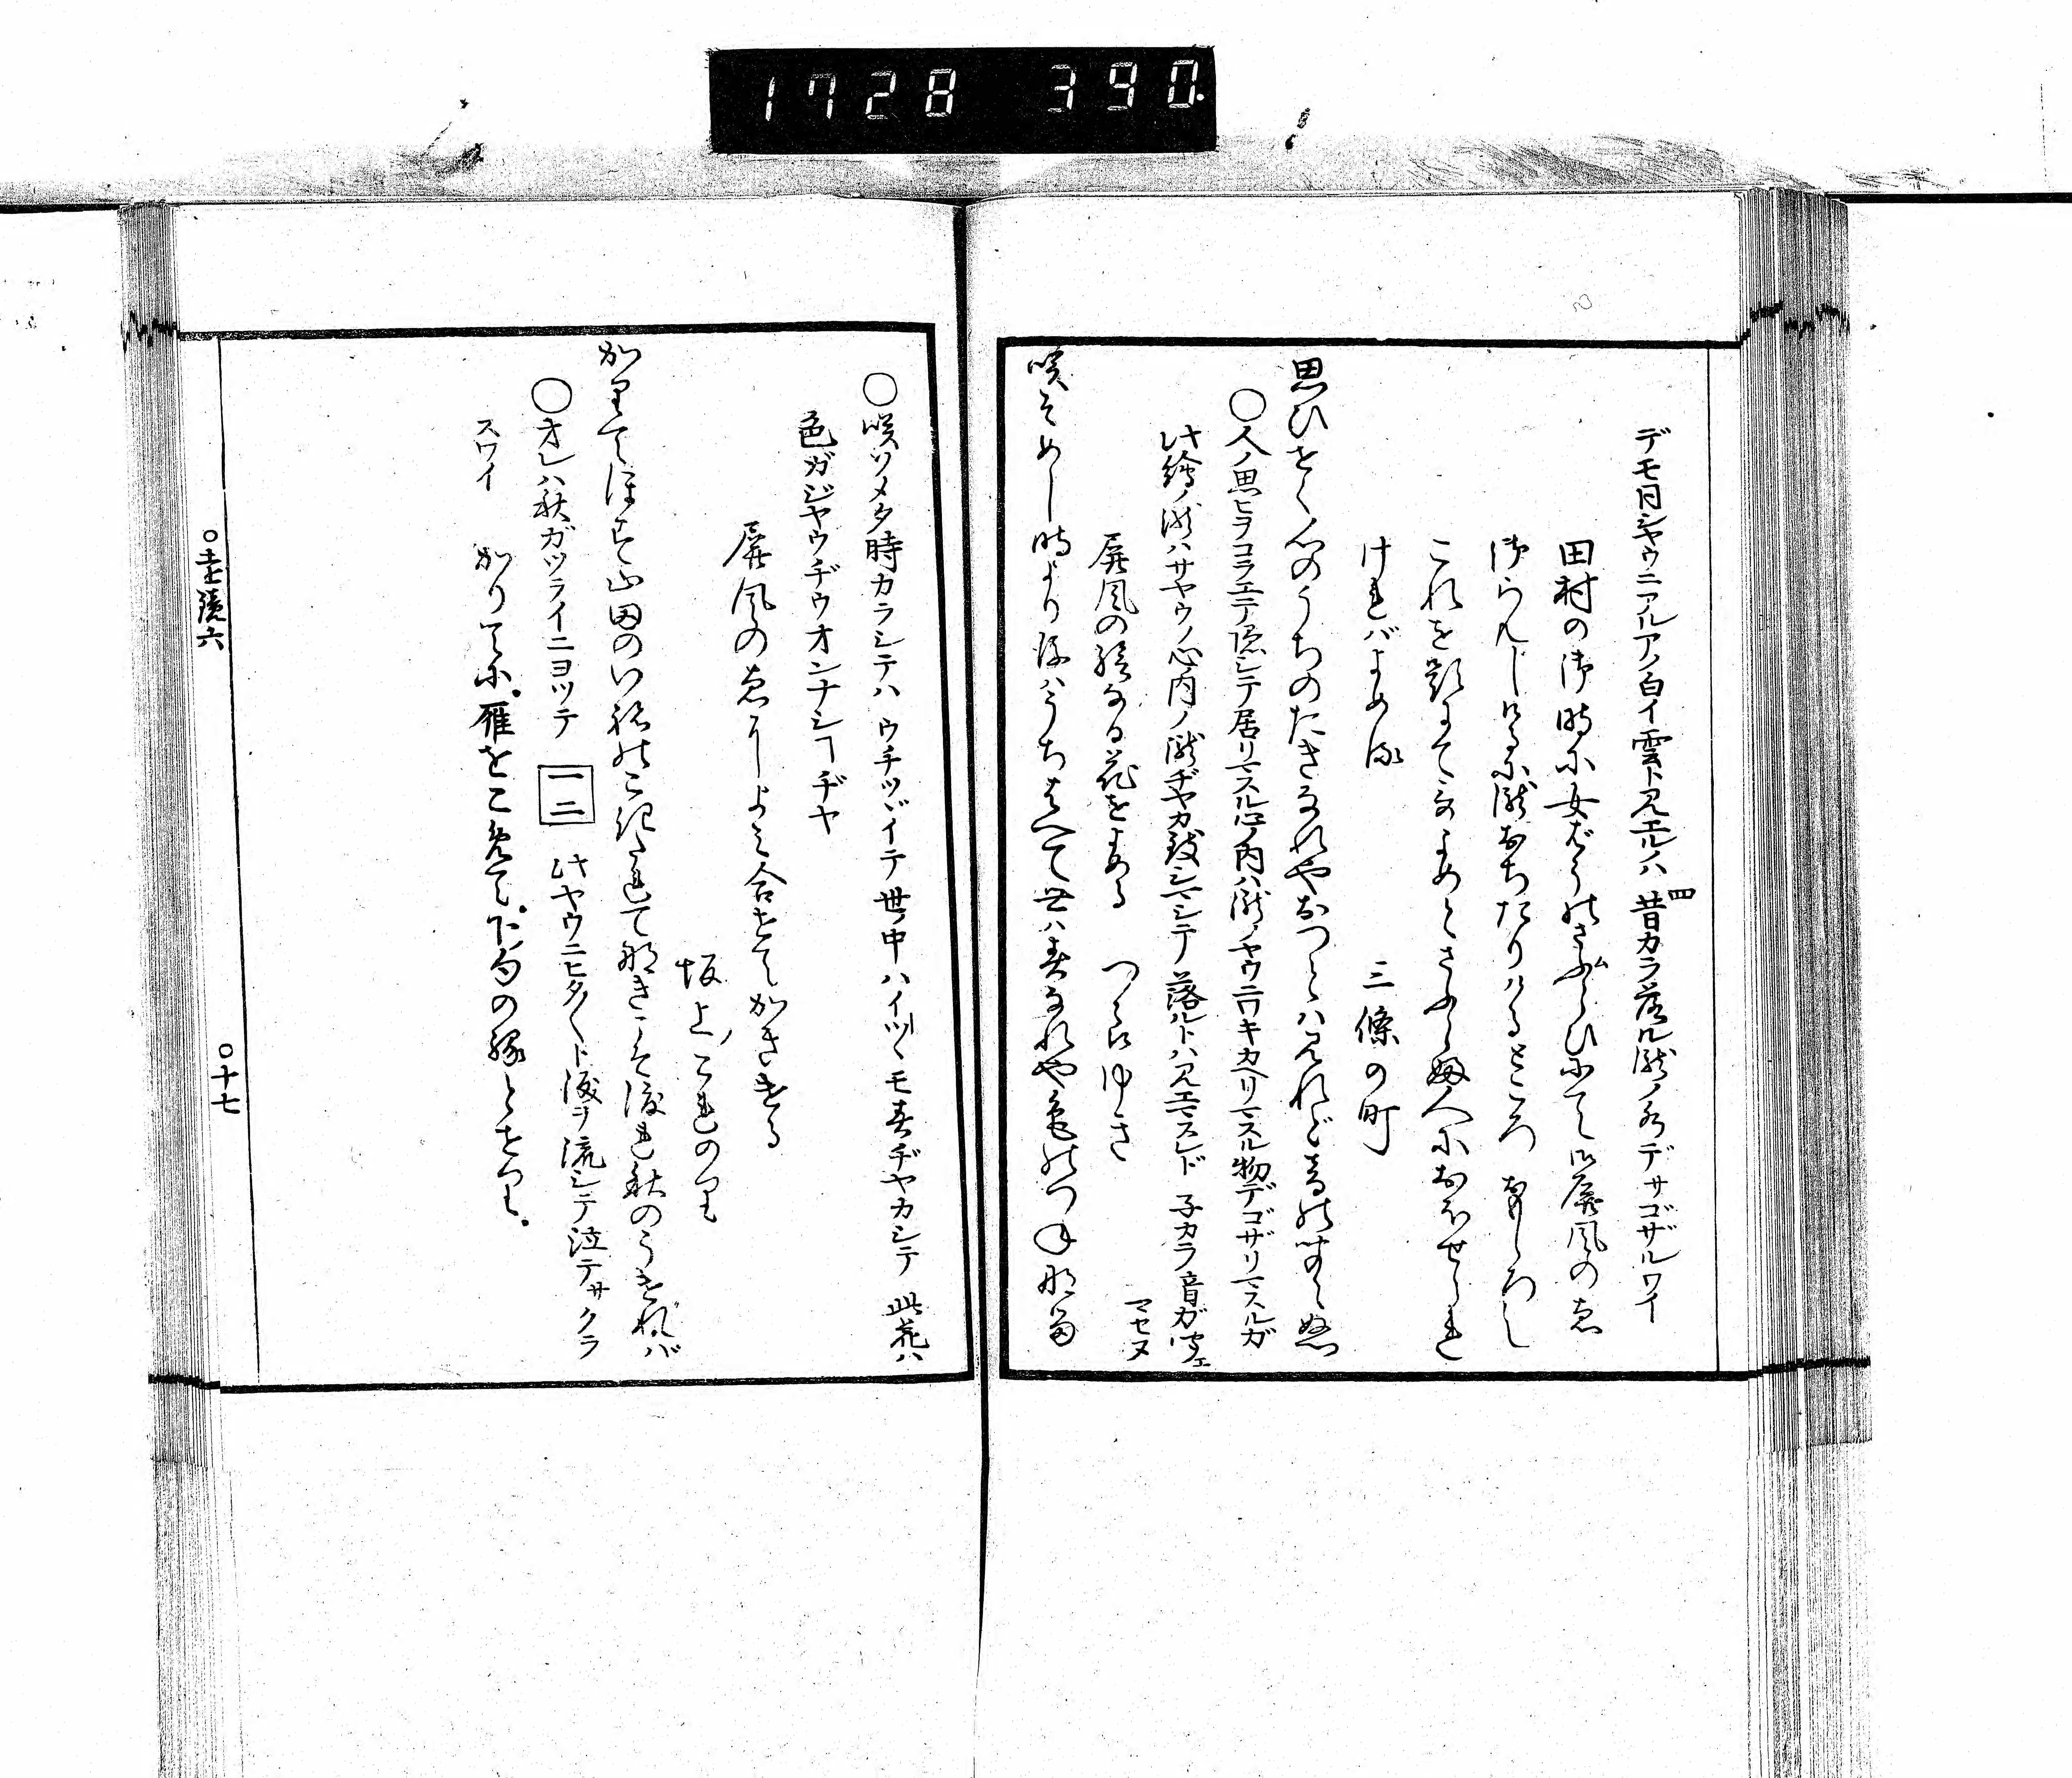 1728 390.
デモ同シヤウニアルアノ白イ雲ト見エルハ 四昔カラ落ル瀧ノ水デサゴザルワイ
田村の御時に女ばうのさふらひにて御屏風のゑ
御らんじけるに瀧おちたりけるところおもしろし
これを題にてうたよめとさふらふ人におほせられ
ければよめる
三條の町
思ひせく心のうちのたきなれやおつとは見れど音のきこえぬ
○人ノ思ヒヲコラエテ隠シテ居リマスル心ノ内ハ瀧ノヤウニワキカヘリマスル物デゴザリマスルガ
此繪ノ瀧ハサヤウノ心内ノ瀧ヂヤカ致シマシテ 落ルトハ見エマスレド 子カラ音ガ聞エ
マセヌ
屏風の繪なる花をよめる つらゆき
咲そめし時より後はうちはへて世は春なれや色のつねなる
○咲ソメタ時カラシテハ ウチツヾイテ世ノ中ハイツヽモ春ヂヤカシテ 此花ハ
色ガジヤウヂウオンナシコヂヤ
屏風のゑによみ合せてかきける
坂上ノこれのり
かりてほす山田のいねのこきたれてなきこそ渡れ秋のうければ
○オレハ秋ガツライニヨツテ 一二 此ヤウニヒタ〳〵ト涙ヲ流シテ泣テサクラ
スワイ
かりてに。雁をこめて。下句の縁とせり。
○遠鏡六
○十七